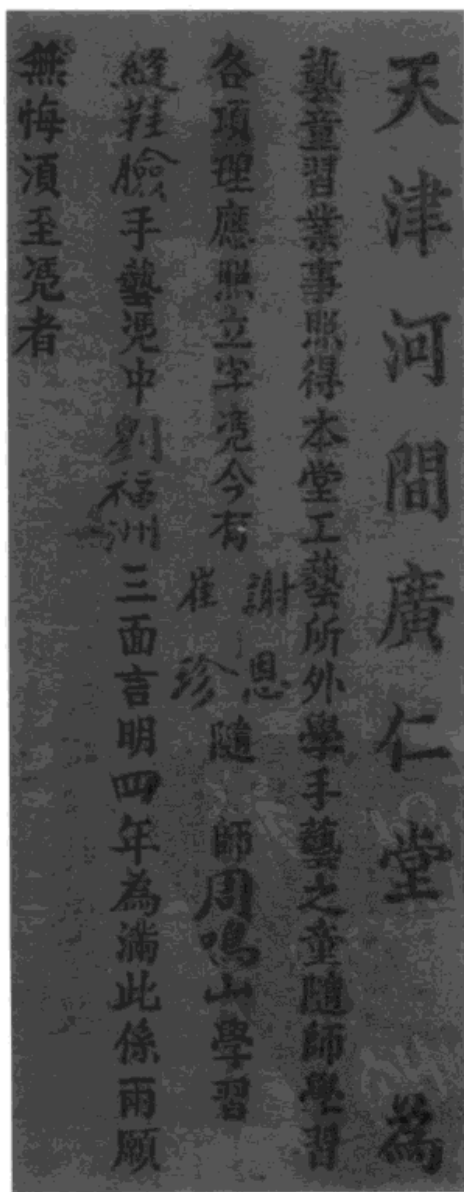 天津河間廣仁堂為
藝童習業事照得本堂工藝所外學手藝之童隨師學習
各項理應照立字凭今有謝恩崔珍隨師周鳴山學習
縫鞋臉手藝凭中劉福洲三面言明四年為滿此係兩願
無悔須至凭者